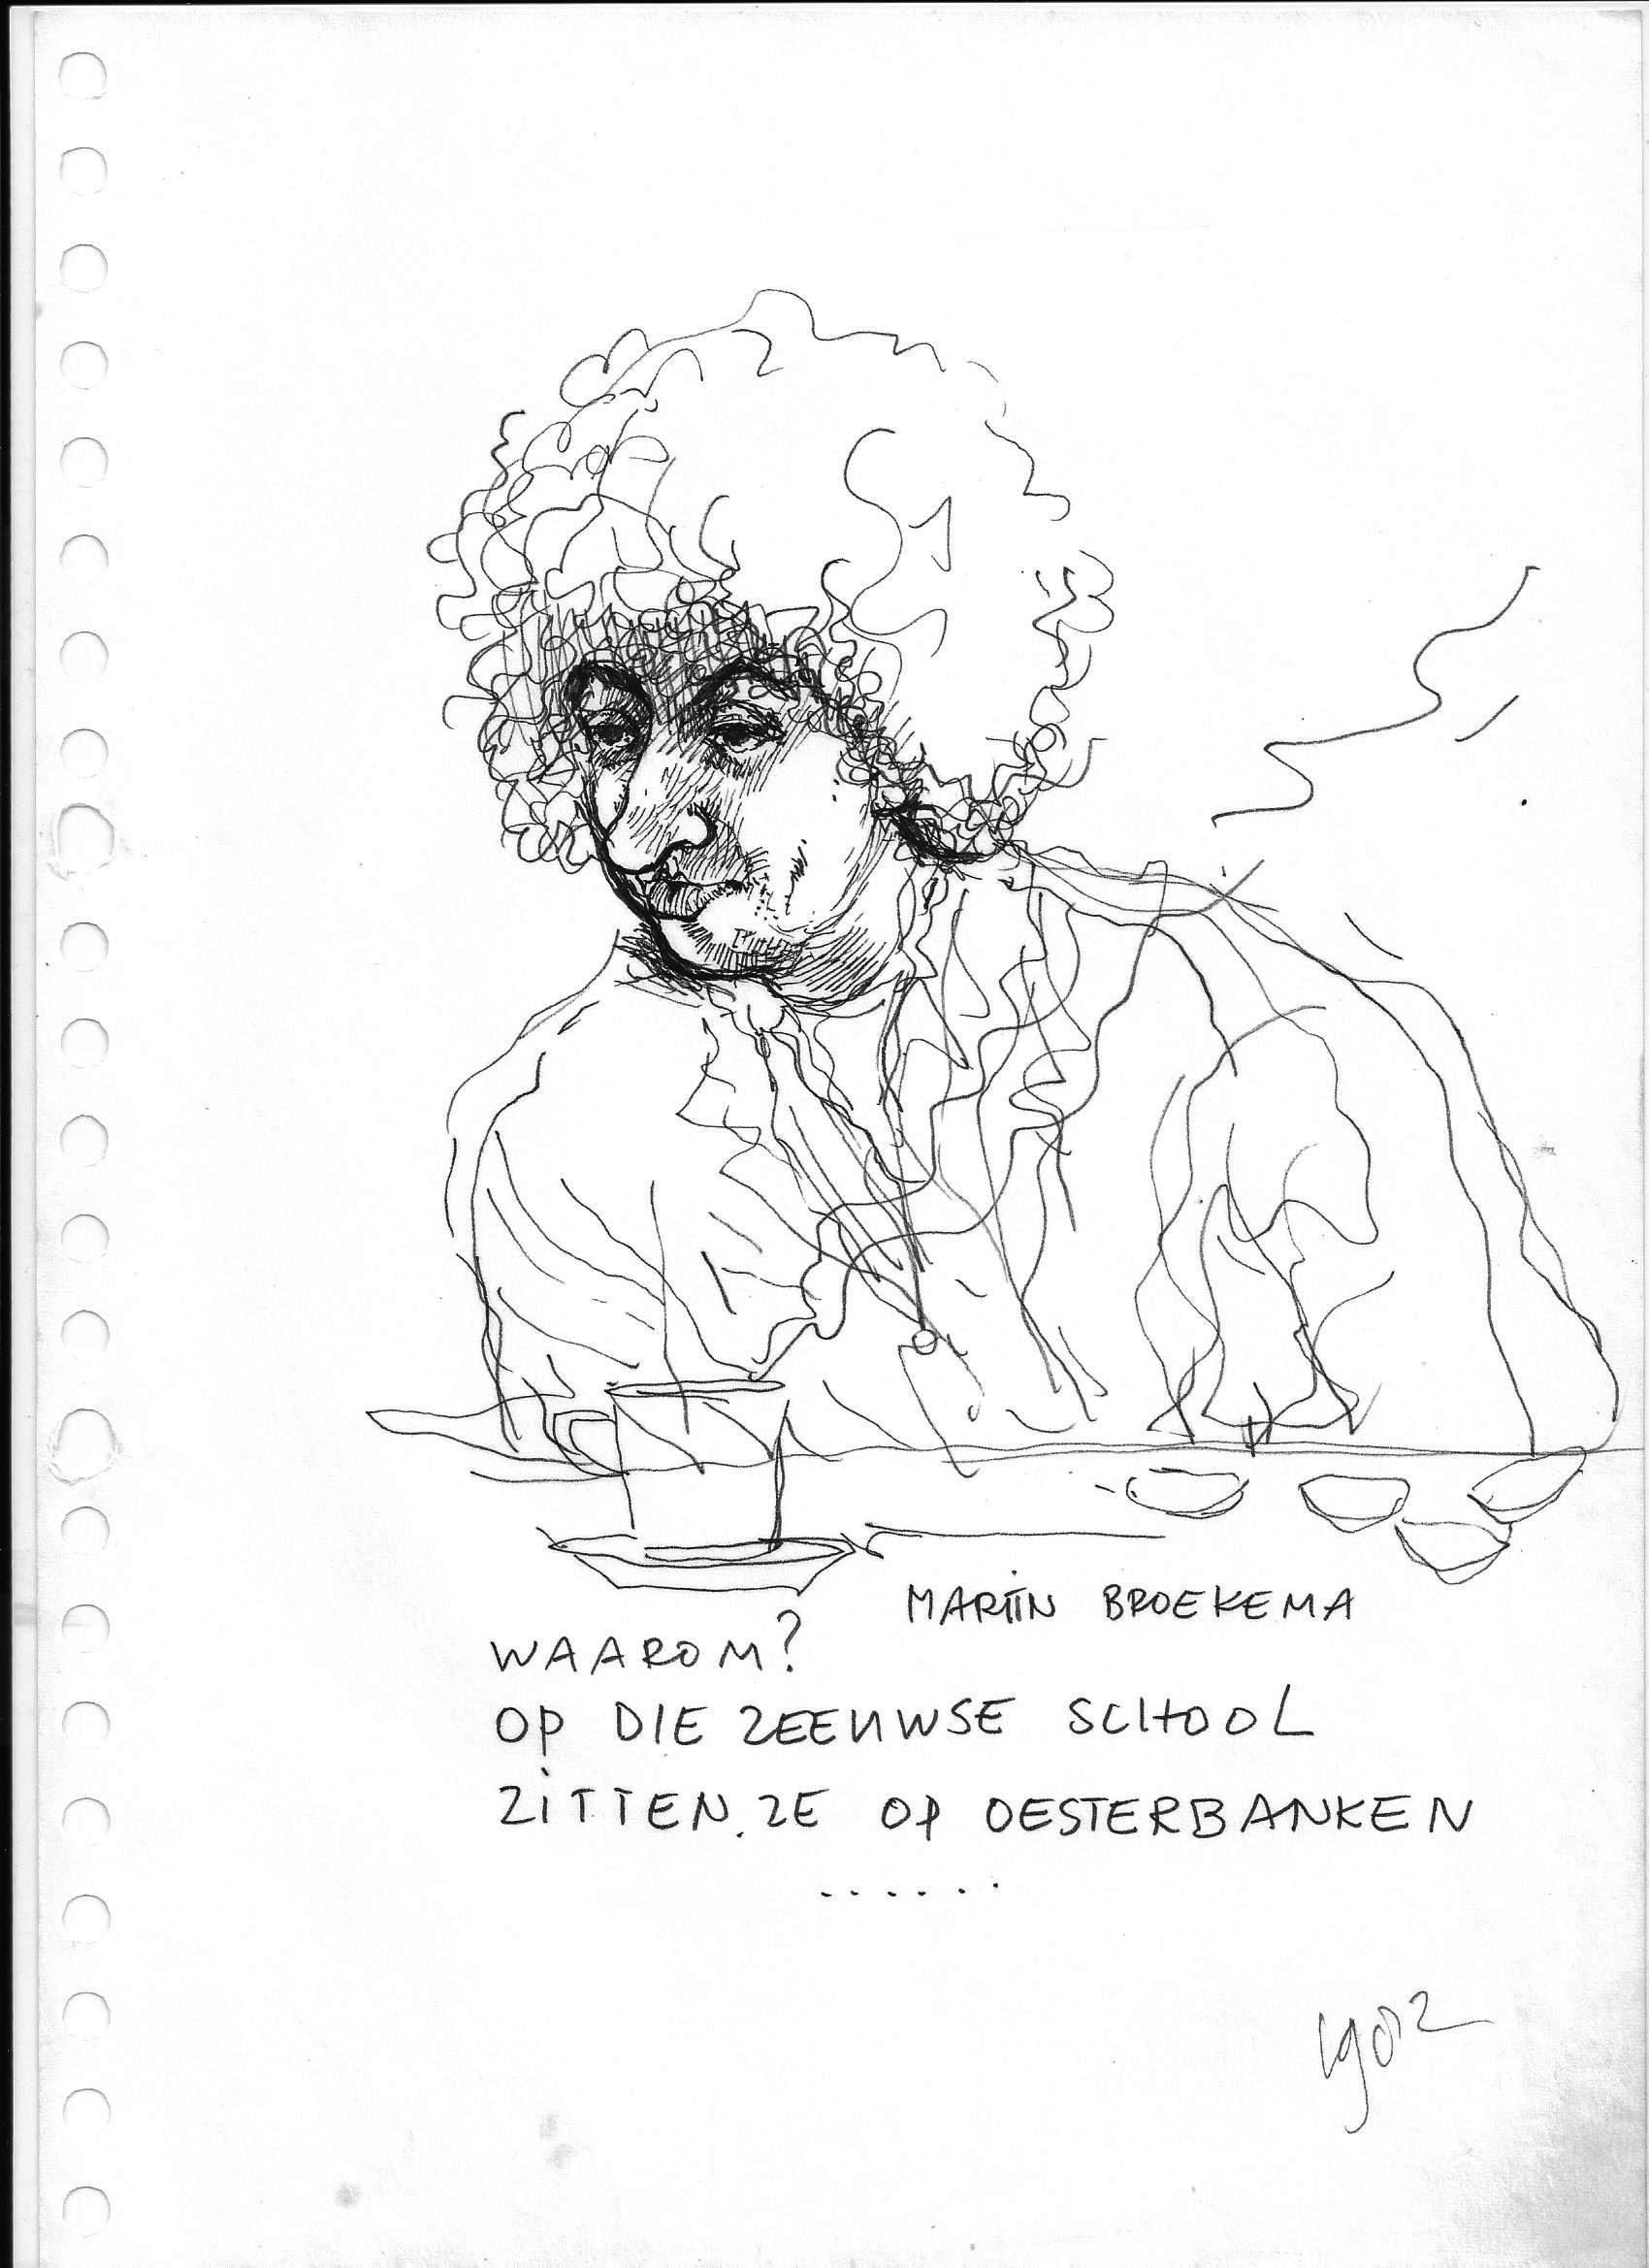 MARTIN BROEKEMA
WAAROM?
OP DIE ZEEUWSE SCHOOL
ZITTEN ZE OP OESTERBANKEN
......